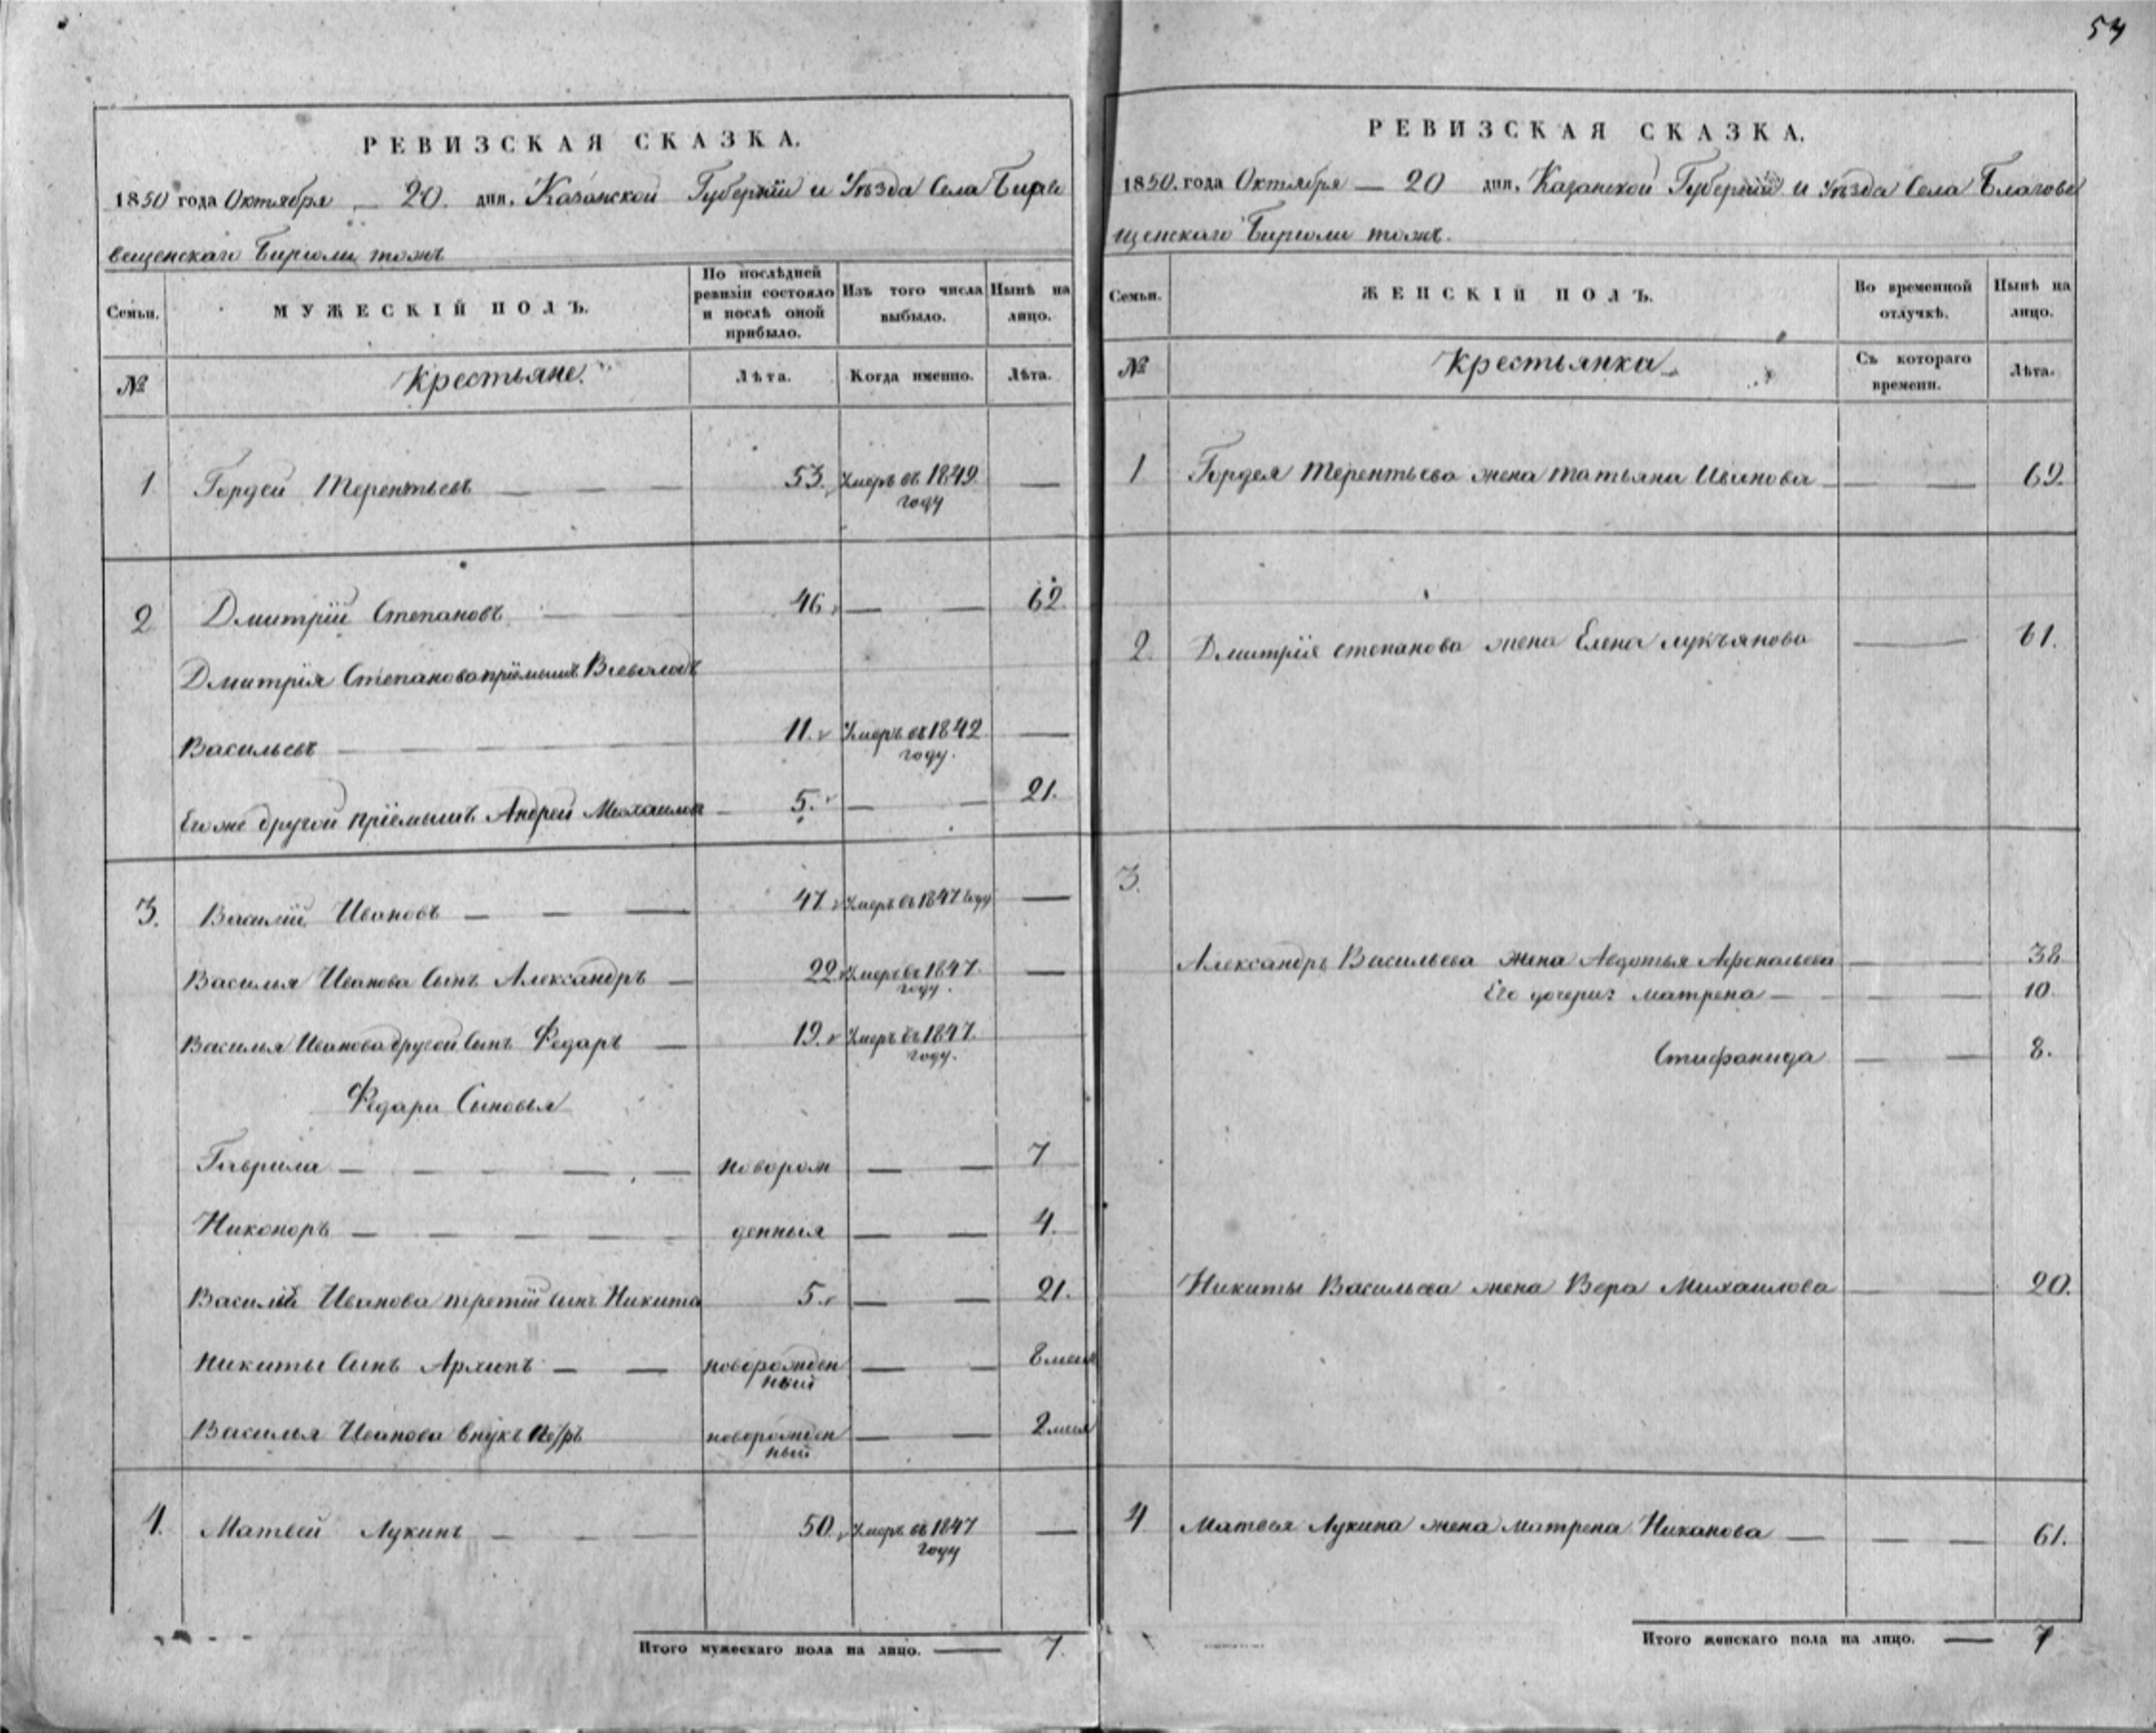 54
РЕВИЗСКАЯ СКАЗКА.
1850 года Октября — 20. дня. Казанской Губернии и Уѣзда Села
вещенскаго Бирюли тожъ
Семьи.
МУЖЕСКІЙ ПОЛЪ.
По послѣдней ревизіи состояло и послѣ оной прибыло.
Изъ того числа выбыло.
Нынѣ на лицо.
№
Крестьяне.
Лѣта.
Когда именно.
Лѣта.
1 Гордей Терентьевъ — — — 53. Умеръ въ 1849 году —
2 Дмитрій Степановъ — 46. — — 62.
Дмитрія Степанова пріёмышъ Всеволодъ
Васильевъ — — — 11. Умеръ въ 1842 году. —
Его же другой пріёмышъ Андрей Михаилов — 5. — — 21.
3. Василій Ивановъ — — — 47. Умеръ въ 1847 году —
Василья Иванова сынъ Александръ — 22. Умеръ въ 1847. году. —
Василья Иванова другой сынъ Федаръ — 19. Умеръ въ 1847. году.
Федара Сыновья
Гаврила — — — — — новорож — — 7
Никоноръ — — — — — денныя — — 4.
Василья Иванова третій сынъ Никита 5. — — 21.
Никиты сынъ Архипъ — — новорожден ный — — 8 меся
Василья Иванова внукъ Петръ новорожден ный — — 2 меся
4. Матвей Лукинъ — — — 50. Умеръ въ 1847 году —
Итого мужескаго пола на лицо. — 7.
РЕВИЗСКАЯ СКАЗКА.
1850. года Октября — 20 дня. Казанской Губерній и Уѣзда Села Благове
щенскаго Бирюли тожъ.
Семьи.
ЖЕНСКІЙ ПОЛЪ.
Во временной отлучкѣ.
Нынѣ на лицо.
№
Крестьянка
Съ котораго времени.
Лѣта.
1 Гордея Терентьева жена Татьяна Иванова — — 69.
2. Дмитрія степанова жена Елена лукъянова — 61.
3.
Александръ Васильева жена Авдотья Афонасьева — — 38
Его дочери: матрена — — — 10.
Стифанида — — 8.
Никиты Васильева жена Вера Михаилова — — 20.
4 Матвея Лукина жена матрена Никанова — — — 61.
Итого женскаго пола на лицо. — 7